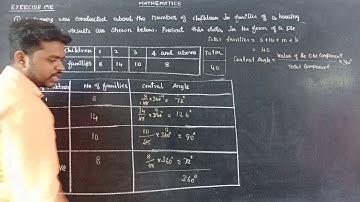 EXERCISE
MATHEMATICS
survey was conducted about the number of children in families of a housing
results are shown below. Present this data in the form of a pie
children 1 2 3 4 and above TOTAL
families 8 14 10 8 40
Total families = 8+14+10+8
= 40
Central Angle = Value of the Component × 360°
Total Component
No. of families Central Angle
8 8/40 × 360° = 72°
14 14/40 × 360° = 126°
10 10/40 × 360° = 90°
8 8/40 × 360° = 72°
360°